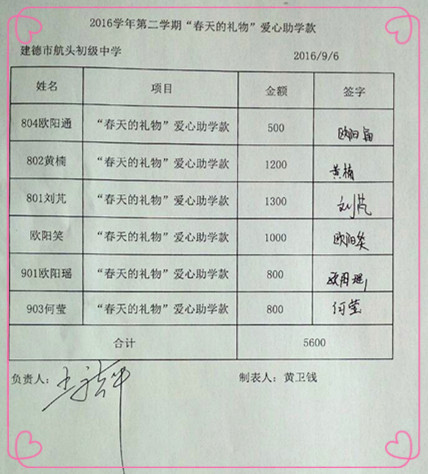 2016学年第二学期“春天的礼物”爱心助学款
建德市航头初级中学 2016/9/6
姓名 项目 金额 签字
804欧阳通 “春天的礼物”爱心助学款 500 欧阳
802黄楠 “春天的礼物”爱心助学款 1200 黄楠
801刘芃 “春天的礼物”爱心助学款 1300 刘芃
欧阳笑 “春天的礼物”爱心助学款 1000 欧阳笑
901欧阳瑶 “春天的礼物”爱心助学款 800 欧阳瑶
903何莹 “春天的礼物”爱心助学款 800 何莹
合计 5600
负责人： 制表人：黄卫钱